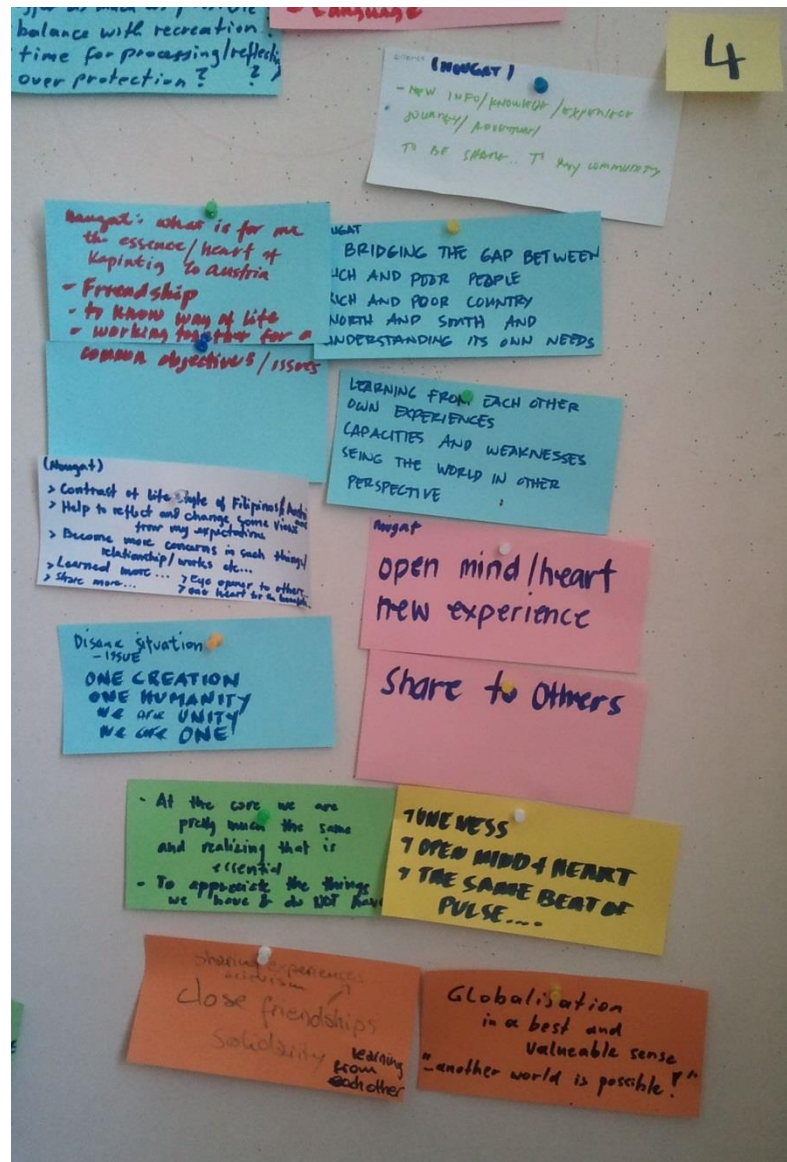 balance with recreation!
time for processing/reflecti
over protection? ?
Language
4
(NOUGAT)
- NEW INFO/KNOWLEDGE/EXPERIENCE
JOURNEY/
TO BE SHARE.. TO MY COMMUNITY
Nougat: what is for me
the essence/heart of
Kapintig to Austria
- Friendship
- to know way of life
- working together for a
common objectives/issues
UGAT
BRIDGING THE GAP BETWEEN
ICH AND POOR PEOPLE
RICH AND POOR COUNTRY
NORTH AND SOUTH AND
UNDERSTANDING ITS OWN NEEDS
LEARNING FROM EACH OTHER
OWN EXPERIENCES
CAPACITIES AND WEAKNESSES
SEING THE WORLD IN OTHER
PERSPECTIVE
(Nougat)
> Contrast of life style of Filipinos/Austri
> Help to reflect and change some views
from my expectations
> Become more concerns in such things/
relationship/works etc...
> Learned more... > Eye opener to others..
> Share more... > one heart
Nougat
open mind/heart
new experience
Share to others
Disame situation
- ISSUE
ONE CREATION
ONE HUMANITY
WE are UNITY
WE are ONE!
- At the core we are
pretty much the same
and realizing that is
essential
- To appreciate the things
we have & do NOT have
> ONENESS
> OPEN MIND & HEART
> THE SAME BEAT OF
PULSE....
sharing experiences
activism
close friendships
solidarity
learning
from
each other
Globalisation
in a best and
valueable sense
"another world is possible!"